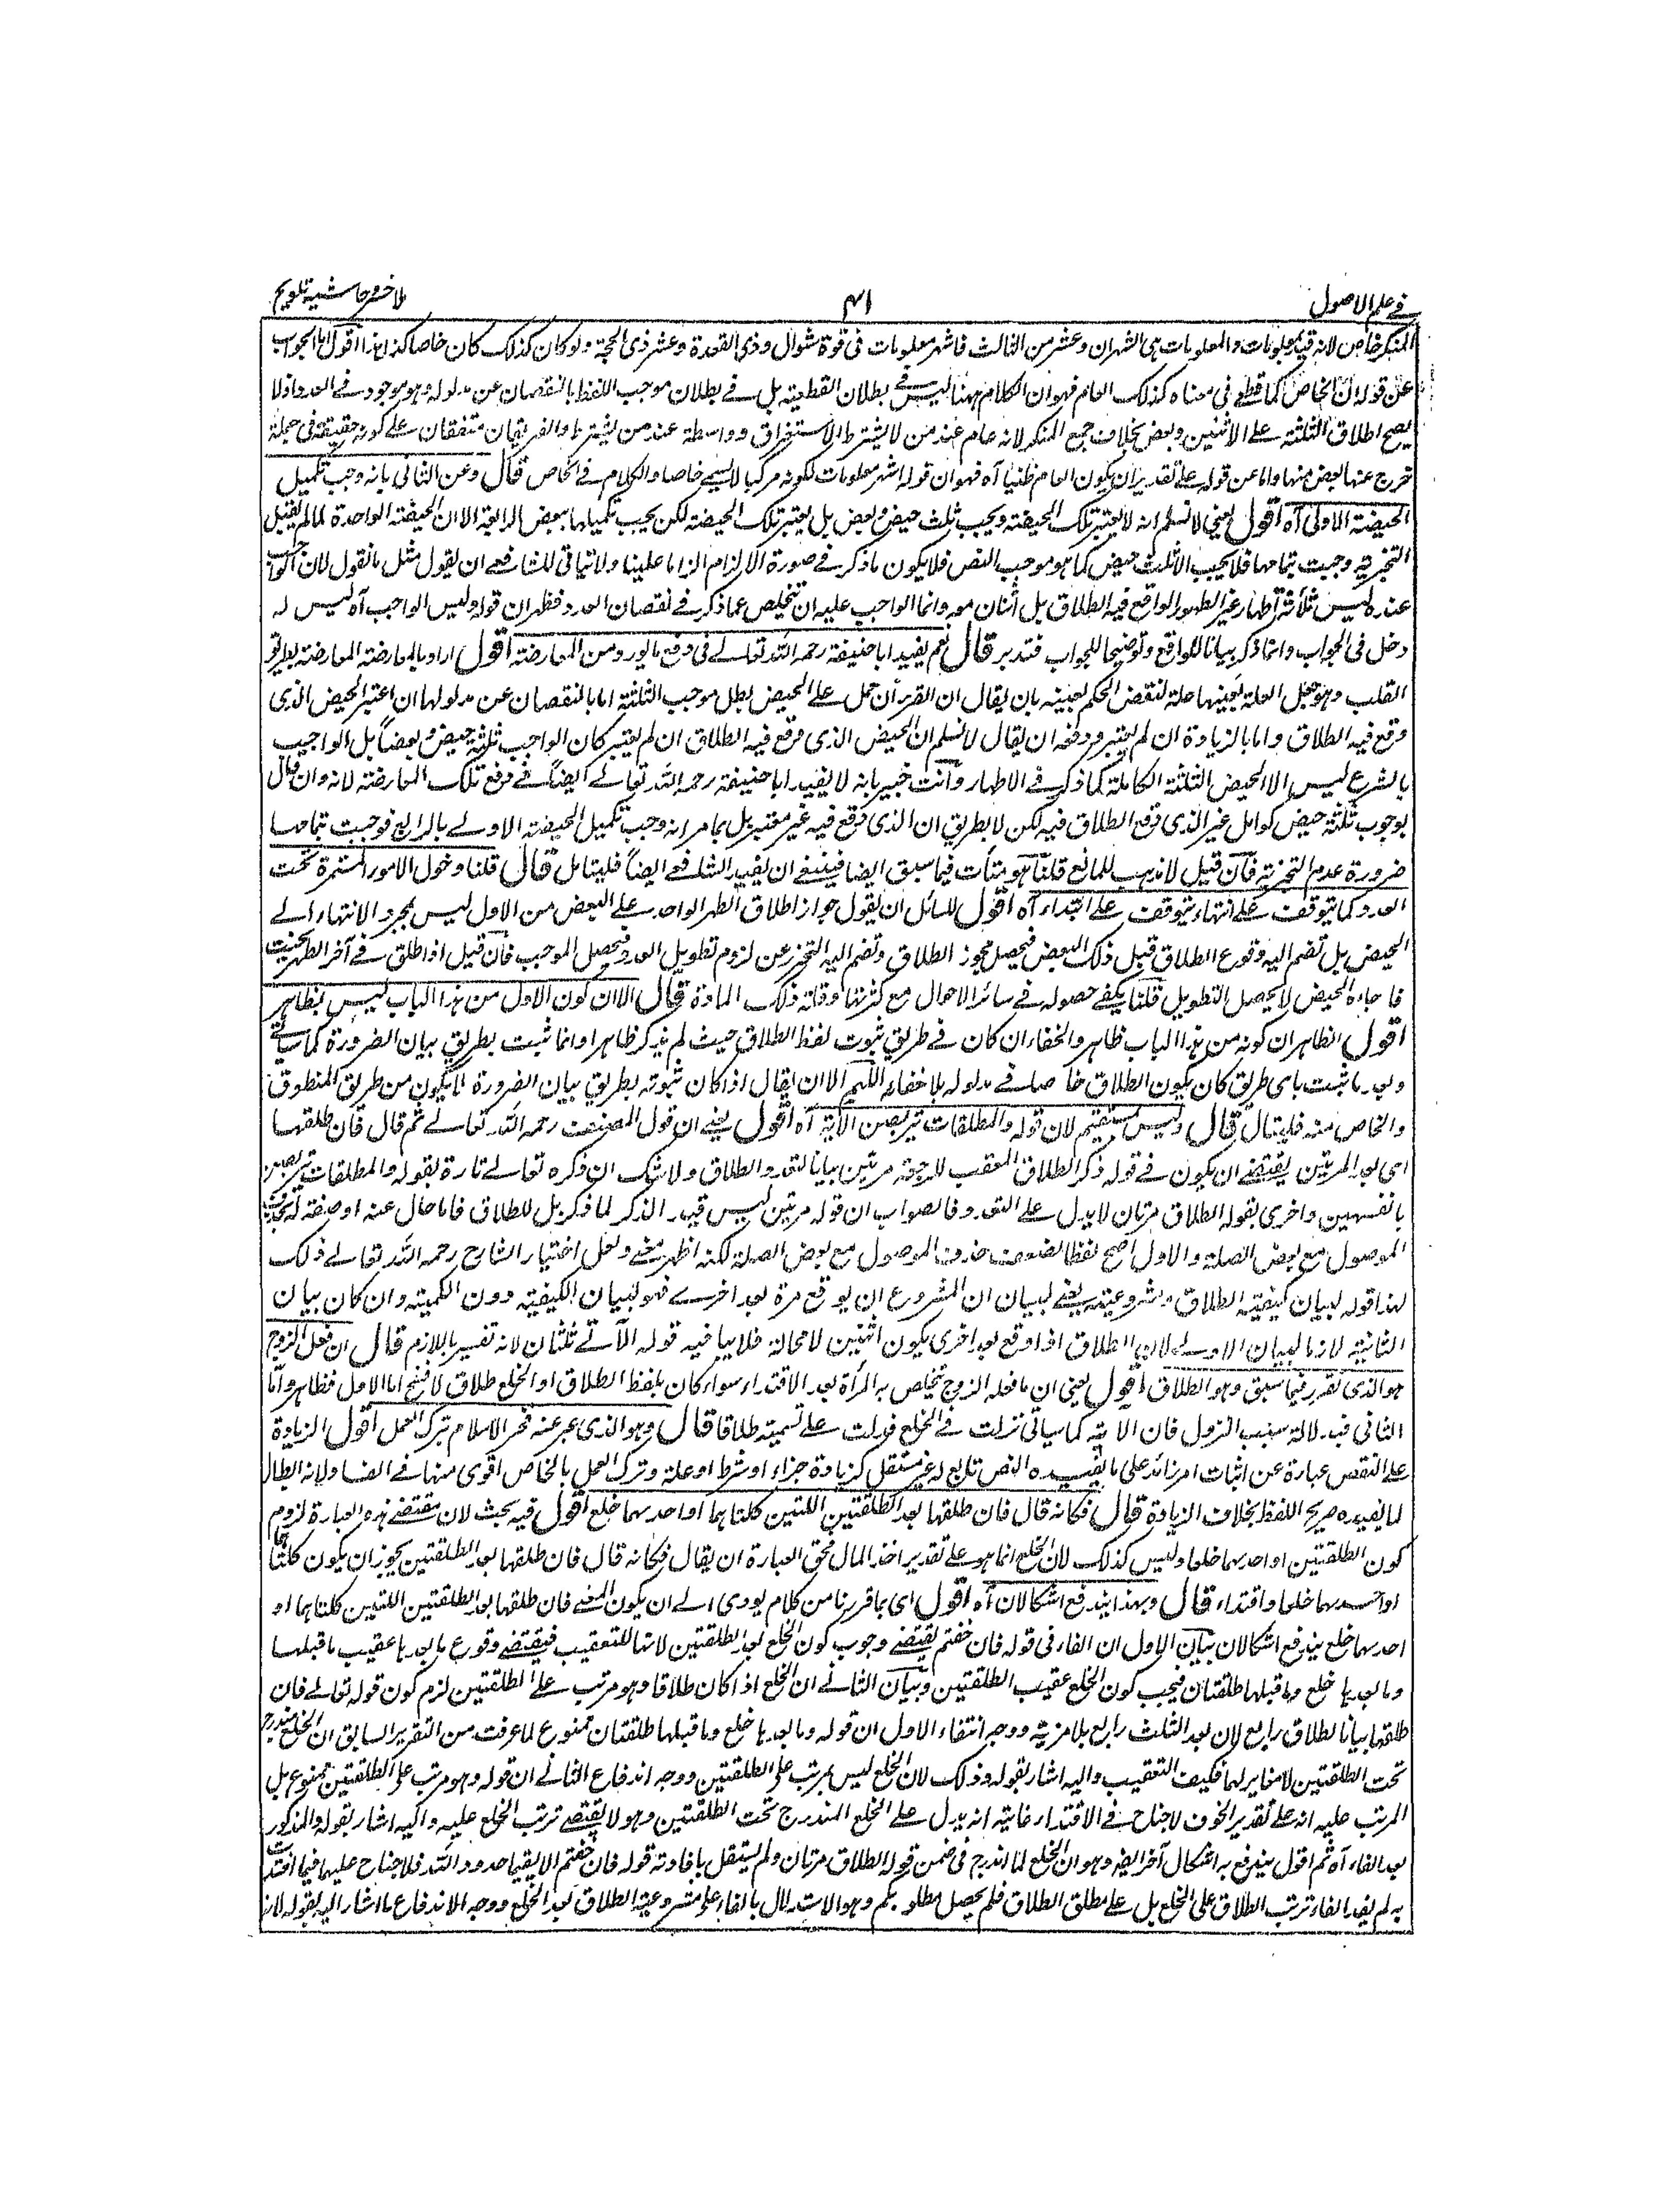 في علم الاصول
۴۱
ملا خسرو حاشية تلويح
المنكر خاص لانه قيد بمعلومات والمعلومات هي الشهران وعشر من الثالث فاشهر معلومات في قوة شوال وذي القعدة وعشر ذي الحجة ولو كان كذلك كان خاصا كذا هذا اقول اما الجواب
عن قوله ان الخاص كما قطعي في معناه كذلك العام فهو ان الكلام ههنا ليس في بطلان القطعية بل في بطلان موجب اللفظ بالنقصان عن مدلوله وهو موجود في العدد اذ لا
يصح اطلاق الثلثة على الاثنين وبعض بخلاف جمع المنكر لانه عام عند من لا يشترط الاستغراق وواسطة عند من يشترط والفريقان متفقان على كونه حقيقة في جملة
خرج عنها البعض منها واما عن قوله على تقدير ان يكون العام ظنيا آه فهو ان قوله اشهر معلومات لكونه مركبا لا يسمى خاصا والكلام في الخاص قال وعن الثاني بانه وجب تكميل
الحيضة الاولى آه اقول يعني لا نسلم انه لا يعتبر تلك الحيضة ويجب ثلث حيض وبعض بل يعتبر تلك الحيضة لكن يجب تكميلها ببعض الرابعة الا ان الحيضة الواحدة لما لم تقبل
التجزية وجبت بتمامها فلا يجب الا ثلث حيض كما هو موجب النص فلا يكون ما ذكر في صورة الالزام الزاما علينا ولا يتأتى للشافعي ان يقول مثل ما نقول لان الواجب
عنده ليس ثلاثة اطهار غير الطهر الواقع فيه الطلاق بل اثنان معه وانما الواجب عليه ان يتخلص عما ذكر في نقصان العدد فظهر ان قوله وليس الواجب آه ليس له
دخل في الجواب وانما ذكر بيانا للواقع وتوضيحا للجواب فتدبر قال نعم يفيد ابا حنيفة رحمه الله تعالى في دفع ما يورد من المعارضة اقول اراد بالمعارضة المعارضة بطريق
القلب وهو جعل العلة بعينها علة لنقض الحكم بعينه بان يقال ان القرء ان حمل على الحيض بطل موجب الثلثة اما بالنقصان عن مدلولها ان اعتبر الحيض الذي
وقع فيه الطلاق واما بالزيادة ان لم يعتبر ودفعه ان يقال لا نسلم ان الحيض الذي وقع فيه الطلاق ان لم يعتبر كان الواجب ثلثة حيض وبعضا بل الواجب
بالشرع ليس الا الحيض الثلثة الكاملة كما ذكر في الاطهار وانت خبير بانه لا يفيد ابا حنيفة رحمه الله تعالى ايضا في دفع تلك المعارضة لانه وان قال
بوجوب ثلثة حيض كوامل غير الذي وقع الطلاق فيه لكن لا بطريق ان الذي وقع فيه غير معتبر بل بما مر انه وجب تكميل الحيضة الاولى بالرابع فوجبت بتمامها
ضرورة عدم التجزية فان قيل لا مذهب للمانع قلنا هو متأت فيما سبق ايضا فينبغي ان يفيد الشافعي ايضا فليتأمل قال قلنا دخول الامور المستمرة تحت
العدد كما يتوقف على انتهاء يتوقف على ابتداء آه اقول للسائل ان يقول جواز اطلاق الطهر الواحد على البعض من الاول ليس بمجرد الانتهاء الى
الحيض بل تضم اليه وقوع الطلاق قبل ذلك البعض فيحصل مجوز الطلاق وتضم اليه التحرز عن لزوم تطويل العدة فيحصل الموجب فان قيل اذا طلق في آخر الطهر بحيث
فاجاءه الحيض لا يحصل التطويل قلنا يكفي حصوله في سائر الاحوال مع كثرتها وقلة ذلك المادة قال الا ان كون الاول من هذا الباب ليس بظاهر
اقول الظاهر ان كونه من هذا الباب ظاهر والخفاء ان كان في طريق ثبوت لفظ الطلاق حيث لم يذكر ظاهرا وانما ثبت بطريق بيان الضرورة كما سيأتي
وبعد ما ثبت باي طريق كان يكون الطلاق خاصا في مدلوله بلا خفاء اللهم الا ان يقال اذا كان ثبوته بطريق بيان الضرورة لا يكون من طريق المنطوق
والخاص منه فليتأمل قال وليس بمستقيم لان قوله والمطلقات يتربصن الآية آه اقول يعني ان قول المصنف رحمه الله تعالى ثم قال فان طلقها
اي بعد المرتين يقتضي ان يكون في قوله ذكر الطلاق المعقب للرجعة مرتين بيانا لتعدد الطلاق ولا شك ان ذكره تعالى تارة بقوله والمطلقات يتربصن
بانفسهن واخرى بقوله الطلاق مرتان لا يدل على التعدد فالصواب ان قوله مرتين ليس قيد الذكر لما ذكر بل للطلاق فاما حال عنه او صفة له بحذف
الموصول مع بعض الصلة والاول اصح لفظا لضعف حذف الموصول مع بعض الصلة لكنه اظهر معنى ولعل اختيار الشارح رحمه الله تعالى ذلك
لهذا قوله لبيان كيفية الطلاق ومشروعيته يعني لبيان ان المشروع ان يوقع مرة بعد اخرى فهو لبيان الكيفية دون الكمية وان كان بيان
الثانية لازما لبيان الاولى لان الطلاق اذا وقع بعد اخرى يكون اثنين لا محالة فلا ينافيه قوله الآتي ثنتان لانه تفسير باللازم قال ان فعل الزوج
هو الذي تقرر فيما سبق وهو الطلاق اقول يعني ان ما فعله الزوج تخلص به المرأة بعد الافتداء سواء كان بلفظ الطلاق او الخلع طلاق لا فسخ اما الاول فظاهر واما
الثاني فبدلالة سبب النزول فان الآية كما سيأتي نزلت في الخلع فدلت على تسميته طلاقا قال وهو الذي عبر عنه فخر الاسلام بترك العمل اقول الزيادة
على النقص عبارة عن اثبات امر زائد على ما يفيده النص تابع له غير مستقل كزيادة جزاء او شرط او علة وترك العمل بالخاص اقوى منها في الفساد لانه ابطال
لما يفيده صريح اللفظ بخلاف الزيادة قال فكانه قال فان طلقها بعد الطلقتين اللتين كلتاهما او احدهما خلع اقول فيه بحث لان مقتضى هذه العبارة لزوم
كون الطلقتين او احدهما خلعا وليس كذلك لان الخلع انما هو على تقدير اخذ المال فحق العبارة ان يقال فكانه قال فان طلقها بعد الطلقتين يجوز ان يكون كلتاهما
او احدهما خلعا وافتداء قال وبهذا يندفع اشكالان آه اقول اي بما قررنا من كلام يودي الى ان يكون المعنى فان طلقها بعد الطلقتين اللتين كلتاهما او
احدهما خلع يندفع اشكالان بيان الاول ان الفاء في قوله فان خفتم يقتضي وجوب كون الخلع بعد الطلقتين لانها للتعقيب فيقتضي وقوع ما بعدها عقيب ما قبلها
وما بعدها خلع وما قبلها طلقتان فيجب كون الخلع عقيب الطلقتين وبيان الثاني ان الخلع اذا كان طلاقا وهو مرتب على الطلقتين لزم كون قوله تعالى فان
طلقها بيانا لطلاق رابع لان بعد الثلث رابع بلا مزية ووجه انتفاء الاول ان قوله وما بعدها خلع وما قبلها طلقتان ممنوع لما عرفت من التقرير السابق ان الخلع مندرج
تحت الطلقتين لا مغاير لهما فكيف التعقيب واليه اشار بقوله وذلك لان الخلع ليس بمرتب على الطلقتين ووجه اندفاع الثاني ان قوله وهو مرتب على الطلقتين ممنوع بل
المرتب عليه انه على تقدير الخوف لا جناح في الافتداء غايته انه يدل على الخلع المندرج تحت الطلقتين وهو لا يقتضي ترتب الخلع عليه واليه اشار بقوله والمذكور
بعد الفاء آه ثم اقول يندفع به اشكال آخر ايضا وهو ان الخلع لما اندرج في ضمن قوله الطلاق مرتان ولم يستقل بافادته قوله فان خفتم الا يقيما حدود الله فلا جناح عليهما فيما افتدت
به لم يفد الفاء ترتب الطلاق على الخلع بل على مطلق الطلاق فلم يحصل مطلوبكم وهو الاستدلال بالفاء على مشروعية الطلاق بعد الخلع ووجه الاندفاع ما اشار اليه بقوله لان